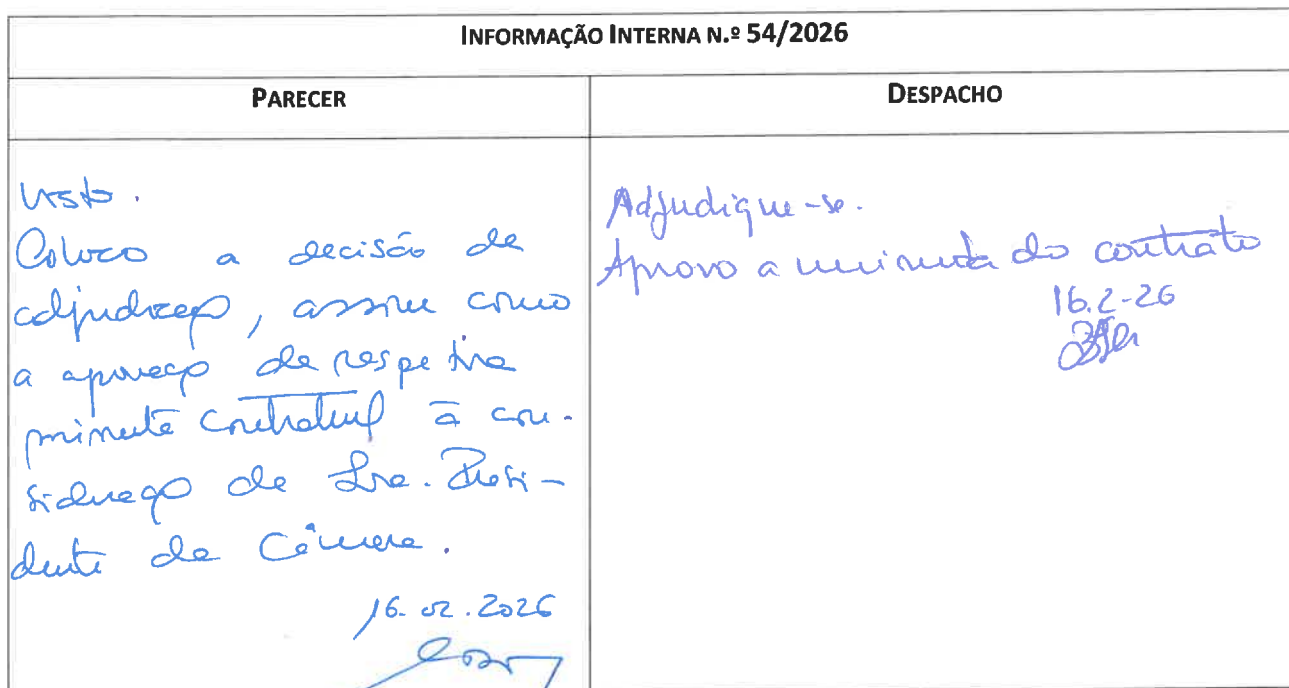 INFORMAÇÃO INTERNA N.º 54/2026
PARECER
Visto.
Coloco a decisão de
adjudicação, assim como
a aprovação da respetiva
minuta contratual à con-
sideração da Sra. Presi-
dente da Câmara.
16.02.2026
DESPACHO
Adjudique-se.
Aprovo a minuta do contrato
16.2-26